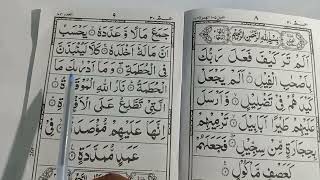 عمّ ٣٠
٨
بِسْمِ اللّٰهِ الرَّحْمٰنِ الرَّحِيْمِ
اَلَمْ تَرَ كَيْفَ فَعَلَ رَبُّكَ
بِاَصْحٰبِ الْفِيْلِ ۝ اَلَمْ يَجْعَلْ
كَيْدَهُمْ فِيْ تَضْلِيْلٍ ۝ وَّاَرْسَلَ
عَلَيْهِمْ طَيْرًا اَبَابِيْلَ ۝ تَرْمِيْهِمْ
بِحِجَارَةٍ مِّنْ سِجِّيْلٍ ۝ فَجَعَلَهُمْ
كَعَصْفٍ مَّاْكُوْلٍ ۝
جَمَعَ مَالًا وَّعَدَّدَهٗ ۝ يَحْسَبُ
اَنَّ مَالَهٗٓ اَخْلَدَهٗ ۝ كَلَّا لَيُنْۢبَذَنَّ
فِي الْحُطَمَةِ ۝ وَمَآ اَدْرٰىكَ مَا
الْحُطَمَةُ ۝ نَارُ اللّٰهِ الْمُوْقَدَةُ ۝
الَّتِيْ تَطَّلِعُ عَلَى الْاَفْـِٕدَةِ ۝
اِنَّهَا عَلَيْهِمْ مُّؤْصَدَةٌ ۝ فِيْ
عَمَدٍ مُّمَدَّدَةٍ ۝